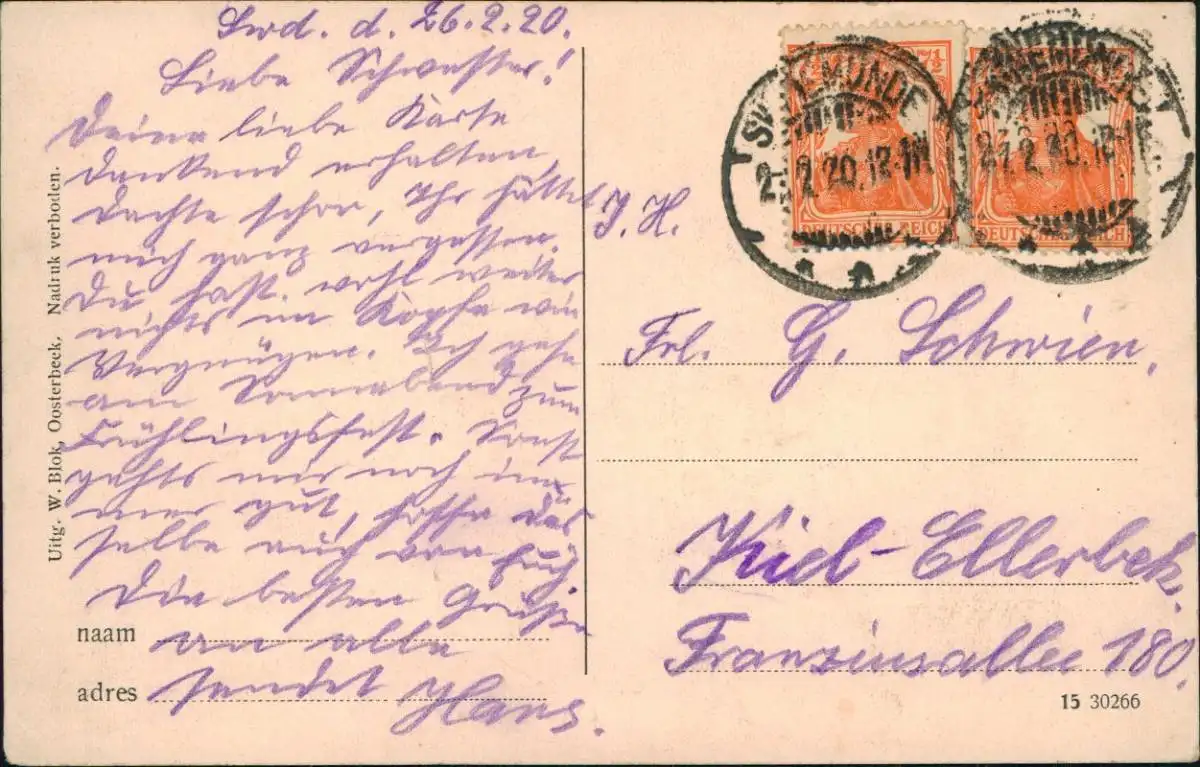 Swd. d. 26.2.20.
Liebe Schwester!
Deine liebe Karte
dankend erhalten,
dachte schon, Ihr hättet
mich ganz vergessen.
Du hast wohl weiter
nichts im Kopfe wie
Vergnügen. Ich gehe
am Sonnabend zum
Frühlingsfest. Sonst
gehts mir noch im
mer gut, hoffe das
selbe auch von Euch
Die besten Grüße
an alle
sendet Hans.
naam
adres
Uitg. W. Blok, Oosterbeek. Nadruk verboden.
J. H.
7½
DEUTSCHES REICH
DEUTSCHES REICH
2.20.12-1N
Frl. G. Schwien,
Kiel-Ellerbek.
Franziusallee 180.
15 30266